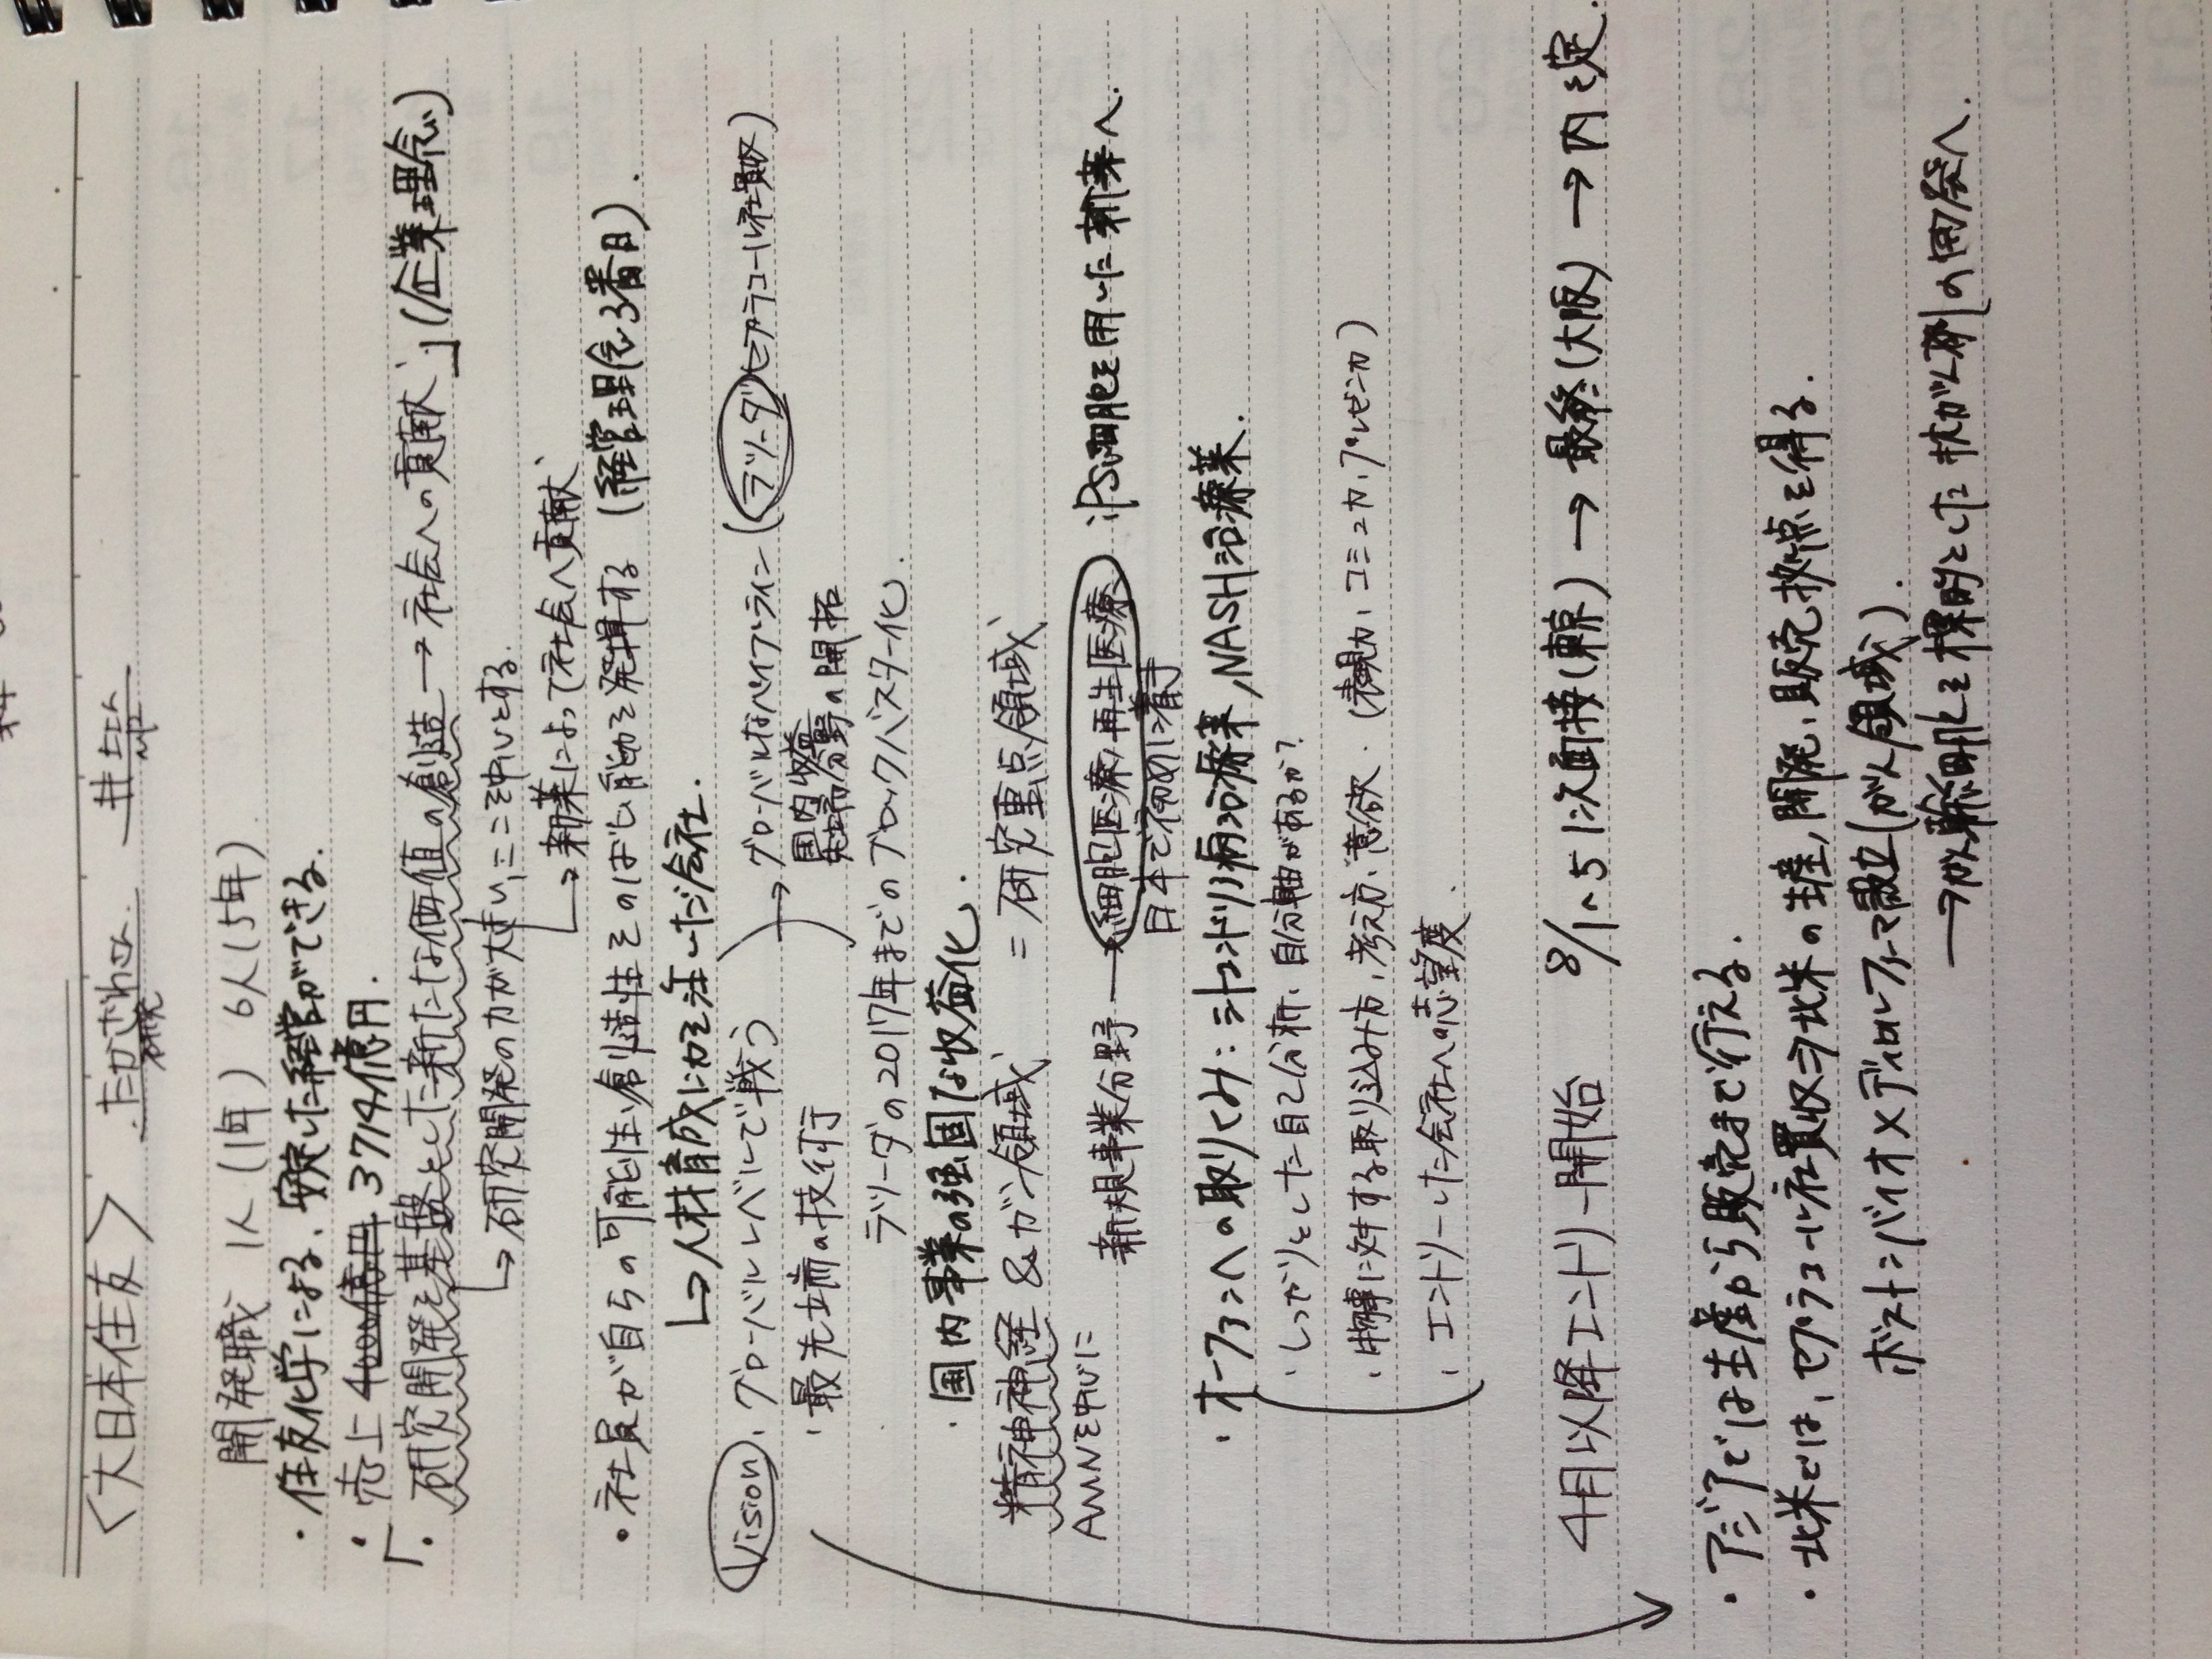 〈大日本住友〉 たかざわさん 井上さん
研究
開発職 1人(1年) 6人(5年)
・住友化学による、安定した経営ができる.
・売上 4000億円 3714億円.
「・研究開発を基盤とした新たな価値の創造→社会への貢献」(企業理念)
↳研究開発の力が大きい、ここを中心とする.
↳新薬によって社会へ貢献
・社員が自らの可能性、創造性をのばし能力を発揮する (経営理念3番目).
↳人材育成に力を注いだ会社.
Vision ・グローバルレベルで戦う → グローバルなパイプライン (ラツーダ セプラコール社買収)
・最先端の技術 国内収益
先端分野の開拓
ラツーダの2017年までのブロックバスター化.
・国内事業の強固な収益化.
精神神経 & ガン領域 = 研究重点領域
AMNを中心に
新規事業分野 → 細胞医療、再生医療 iPS細胞を用いた新薬へ.
日本で初めに着手
・オーファンへの取りくみ: ミトコンドリア病治療薬, NASH治療薬.
・しっかりとした自己分析、自分軸があるか?
・物事に対する取り込み方、考え方、意欲. (表現力、コミュ力、プレゼン力)
・エントリーした会社への志望度.
4月以降エントリー開始 8/1~5 1次面接(東京) → 最終(大阪) → 内々定.
・アジアでは生産から販売まで行える.
・北米では、セプラコール社買収⇒北米の生産,開発、販売拠点を得る.
ボストンバイオ×ファーマ設立(がん領域).
→がん幹細胞を標的とした抗がん剤の開発へ.